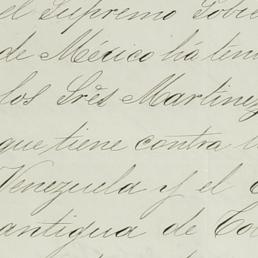 el Supremo Gobie
de México ha ten
los Sres Martinez
que tiene contra l
Venezuela y el
antigua de Co